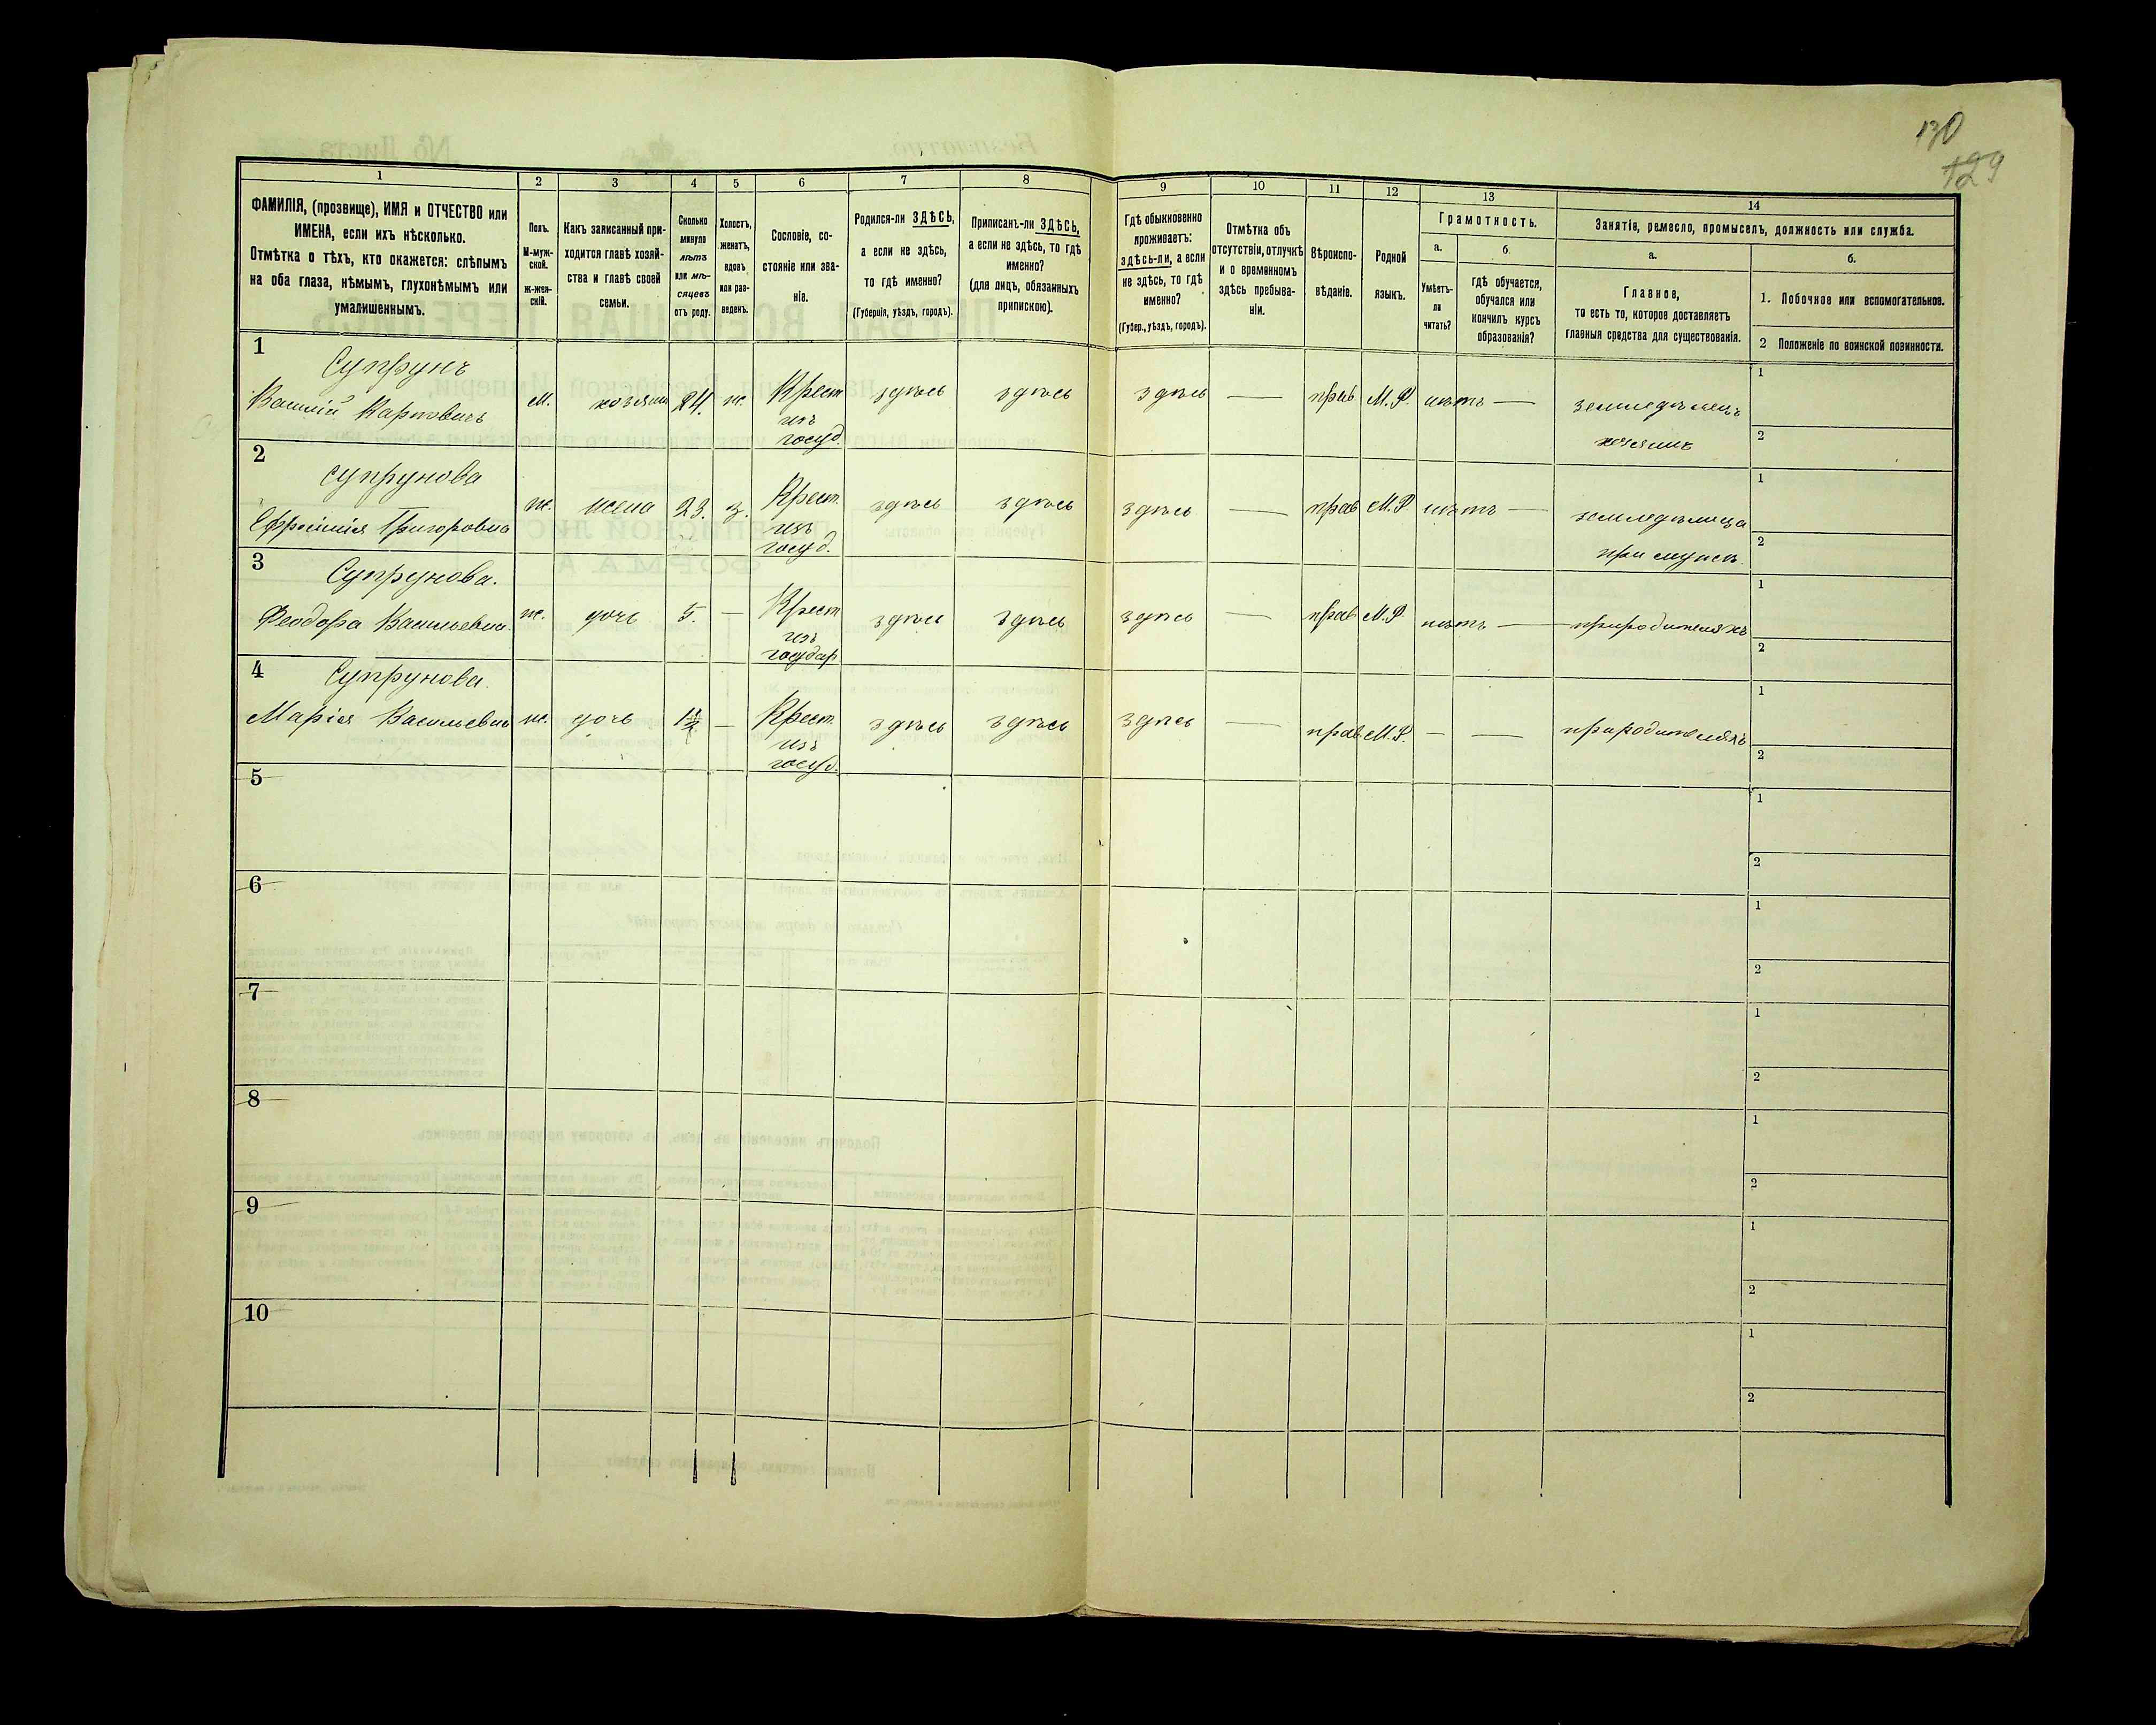 130
129
1 2 3 4 5 6 7 8 9 10 11 12 13 14
ФАМИЛІЯ, (прозвище), ИМЯ и ОТЧЕСТВО или
ИМЕНА, если ихъ нѣсколько.
Отмѣтка о тѣхъ, кто окажется: слѣпымъ
на оба глаза, нѣмымъ, глухонѣмымъ или
умалишеннымъ.
Полъ.
М-муж-
ской.
Ж-жен-
скій.
Какъ записанный при-
ходится главѣ хозяй-
ства и главѣ своей
семьи.
Сколько
минуло
лѣтъ
или мѣ-
сяцевъ
отъ роду.
Холостъ,
женатъ,
вдовъ
или раз-
веденъ.
Сословіе, со-
стояніе или зва-
ніе.
Родился-ли ЗДѢСЬ,
а если не здѣсь,
то гдѣ именно?
(Губернія, уѣздъ, городъ).
Приписанъ-ли ЗДѢСЬ,
а если не здѣсь, то гдѣ
именно?
(для лицъ, обязанныхъ
припискою).
Гдѣ обыкновенно
проживаетъ:
здѣсь-ли, а если
не здѣсь, то гдѣ
именно?
(Губер., уѣздъ, городъ).
Отмѣтка объ
отсутствіи, отлучкѣ
и о временномъ
здѣсь пребыва-
ніи.
Вѣроиспо-
вѣданіе.
Родной
языкъ.
Грамотность.
а.
Умѣетъ-
ли
читать?
б.
гдѣ обучается,
обучался или
кончилъ курсъ
образованія?
Занятіе, ремесло, промыселъ, должность или служба.
а.
Главное,
то есть то, которое доставляетъ
главныя средства для существованія.
б.
1. Побочное или вспомогательное.
2 Положеніе по воинской повинности.
1 Супрунъ
Василій Карповичъ м. хозяинъ 24. ж. Крест здѣсь здѣсь здѣсь — прав М.Р. нѣтъ — земледѣлецъ 1
изъ
госуд. хозяинъ 2
2 Супрунова
Ефросинія Григоровна ж. жена 23. з. Крест. здѣсь здѣсь здѣсь — прав М.Р нѣтъ — земледѣлица 1
изъ
госуд. при мужѣ. 2
3 Супрунова.
Феодора Васильевна. ж. дочь 5. — Крест здѣсь здѣсь здѣсь — прав М.Р. нѣтъ — при родителяхъ 1
изъ
государ 2
4 Супрунова.
Марія Васильевна ж. дочь — Крест. здѣсь здѣсь здѣсь — прав. М.Р. — — при родителяхъ 1
изъ
госуд. 2
5 1
2
6 1
2
7 1
2
8 1
2
9 1
2
10 1
2